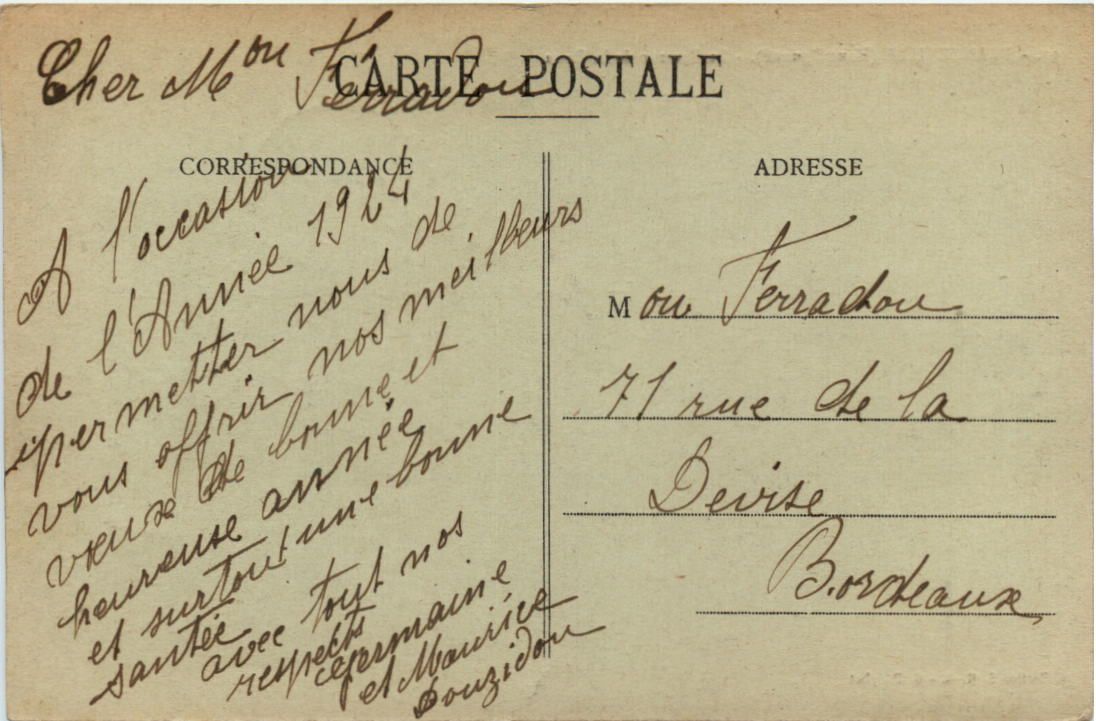 CARTE POSTALE
CORRESPONDANCE
Cher Mon Ferradou
A l'occasion
de l'Année 1924
permetter nous de
vous offrir nos meilleurs
vœux de bonne et
heureuse année
et surtout une bonne
santée
avec tout nos
respects
Germaine
et Maurice
Douzidou
ADRESSE
Mon Ferradou
71 rue de la
Devise
Bordeaux